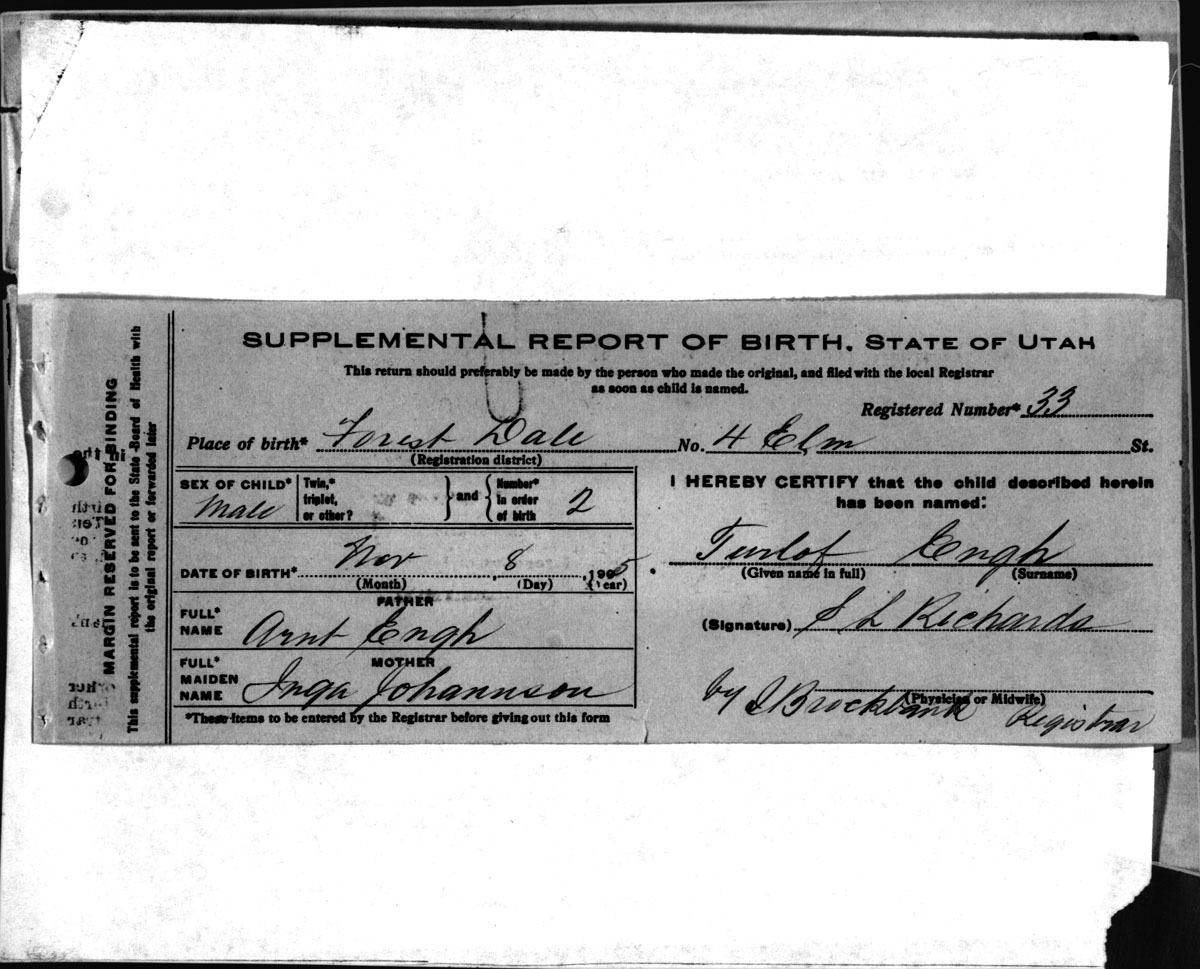 SUPPLEMENTAL REPORT OF BIRTH, STATE OF UTAH
This return should preferably be made by the person who made the original, and filed with the local Registrar
as soon as child is named.
Registered Number* 33
Place of birth* Forest Dale No. 4 Elm St.
(Registration district)
SEX OF CHILD* Male
Twin,* triplet, or other? } and { Number* in order of birth 2
DATE OF BIRTH* Nov 8 1905
(Month) (Day) (Year)
FATHER
FULL* NAME Arnt Engh
MOTHER
FULL* MAIDEN NAME Inga Johannson
*These items to be entered by the Registrar before giving out this form
I HEREBY CERTIFY that the child described herein
has been named:
Turlof Engh
(Given name in full) (Surname)
(Signature) S L Richards
(Physician or Midwife)
by J Brockbank Registrar
MARGIN RESERVED FOR BINDING
This supplemental report is to be sent to the State Board of Health with
the original report or forwarded later